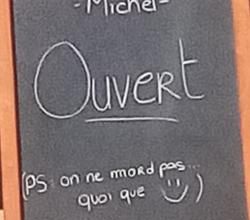 -Michel-
Ouvert
(PS: on ne mord pas...
quoi que )